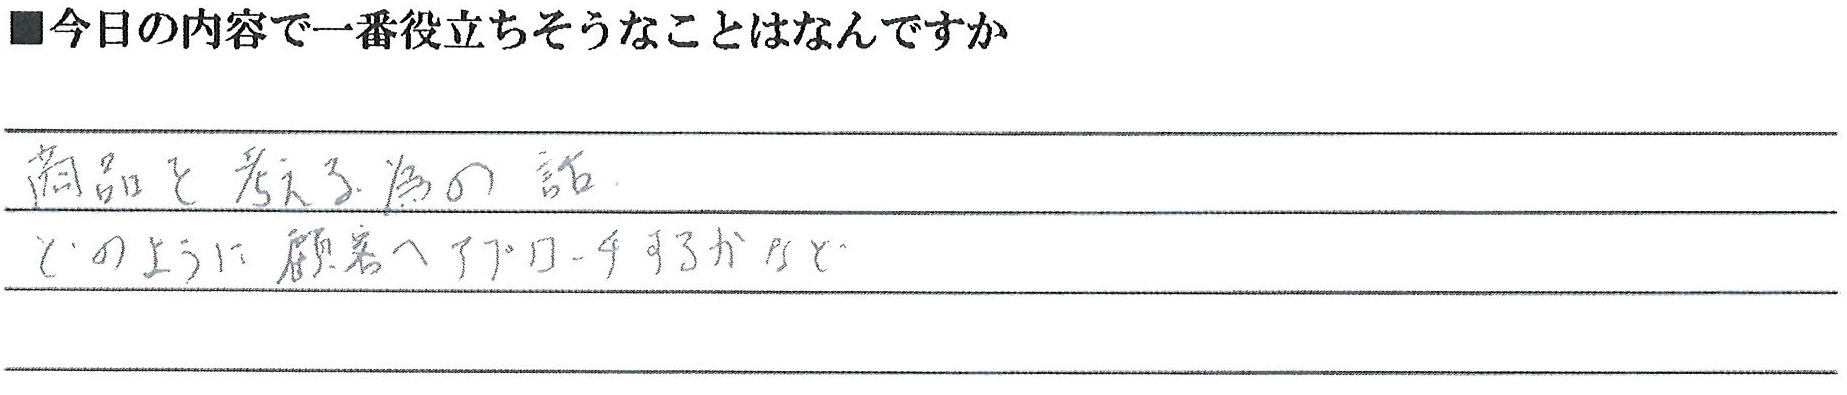 ■今日の内容で一番役立ちそうなことはなんですか
商品を考える為の話.
どのように顧客へアプローチするかなど